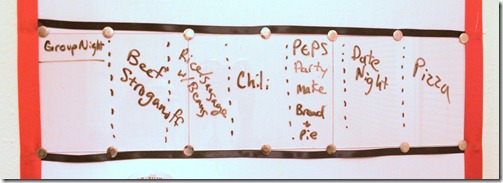 Group Night
Beef
Stroganoff
Rice/sausage
w/Beans
Chili
PEPS
Party
Make
Bread
+
Pie
Date
Night
Pizza